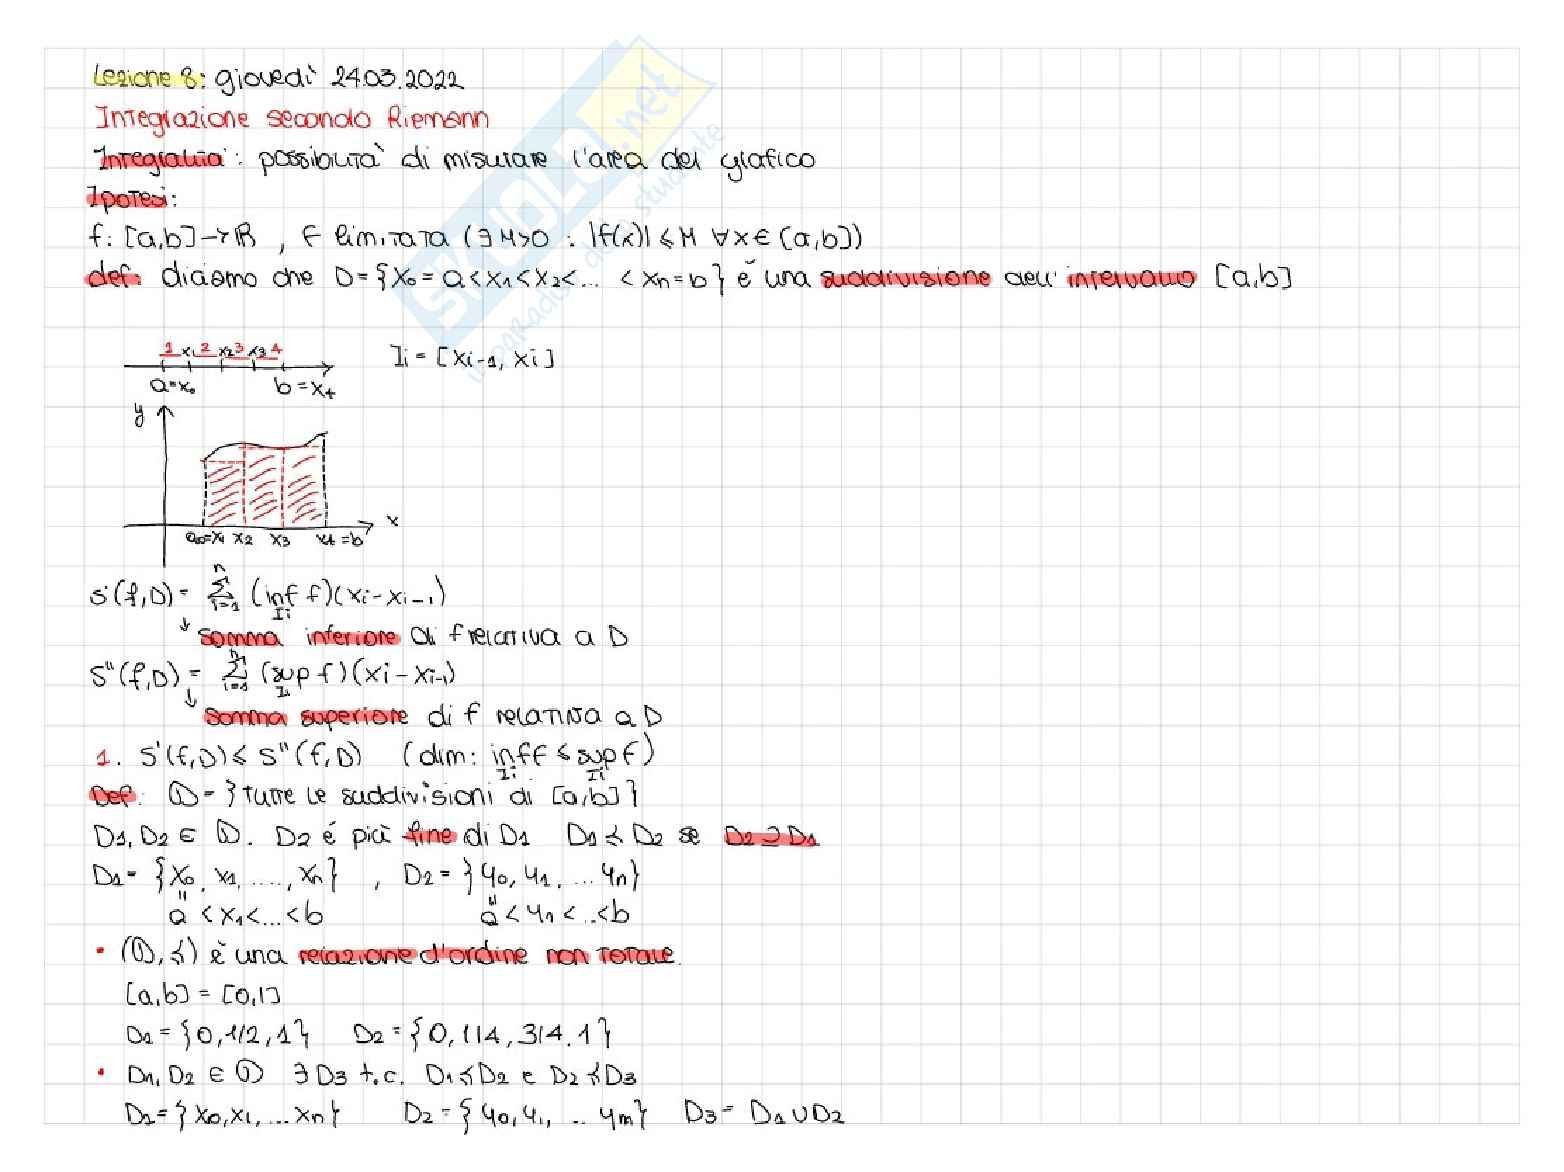 Lezione 8: giovedì 24.03.2022
Integrazione secondo Riemann
Integralità: possibilità di misurare l'area del grafico
Ipotesi:
f: [a,b]→ℝ , f limitata (∃M>0 : |f(x)|≤M ∀x∈[a,b])
def: diciamo che D={x₀=a<x₁<x₂<... <xₙ=b} è una suddivisione dell'intervallo [a,b]
1 x₁ 2 x₂ 3 x₃ 4
Iᵢ = [xᵢ₋₁, xᵢ]
a=x₀ b=x₄
y
x
a₀=x₁ x₂ x₃ x₄=b
S'(f,D)= ∑ᵢ₌₁ⁿ (inf_Iᵢ f)(xᵢ-xᵢ₋₁)
↓ somma inferiore di f relativa a D
S''(f,D) = ∑ᵢ₌₁ⁿ (sup_Iᵢ f)(xᵢ-xᵢ₋₁)
↓ somma superiore di f relativa a D
1. S'(f,D)≤ S''(f,D) (dim: inf_Iᵢ f ≤ sup_Iᵢ f)
Def: 𝒟={tutte le suddivisioni di [a,b]}
D₁,D₂ ∈ 𝒟. D₂ é più fine di D₁ D₁≼D₂ se D₂⊃D₁
D₁= {x₀, x₁, ...., xₙ} , D₂={y₀, y₁, ... yₙ}
" "
a <x₁<...<b a<y₁<...<b
• (𝒟,≼) è una relazione d'ordine non totale.
[a,b] = [0,1]
D₁={0,1/2,1} D₂={0,1/4,3/4,1}
• D₁,D₂ ∈ 𝒟 ∃D₃ t.c. D₁≼D₂ e D₂≼D₃
D₁={x₀,x₁,...xₙ} D₂={y₀,y₁, .. yₘ} D₃= D₁∪D₂
SKUOLA.net
il paradiso dello studente